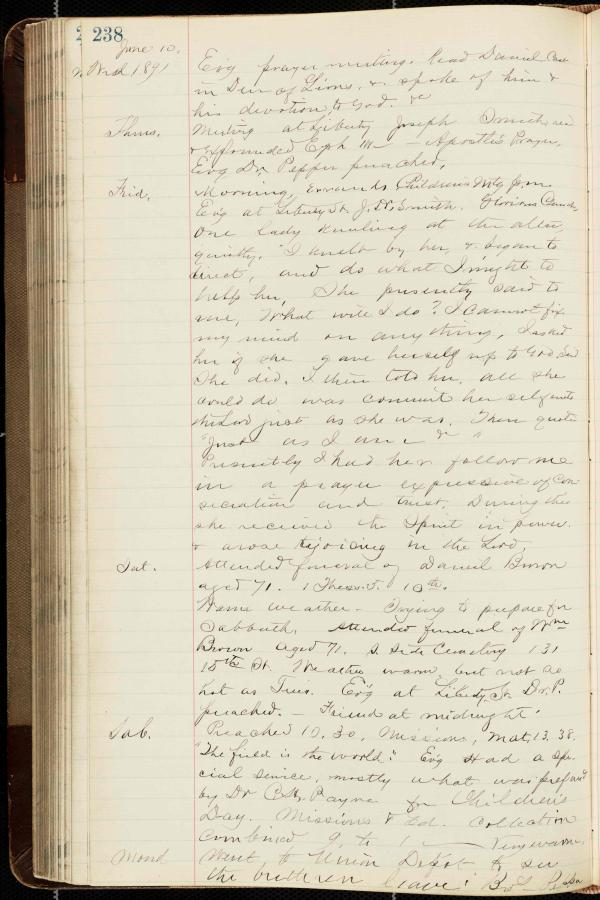 238
June 10,
Wed 1891
Evg prayer meeting. Read Daniel Cast
in Den of Lions. & spoke of him &
his devotion to God. &c
Thurs.
Meeting at Liberty Joseph Smith
& Expounded Eph III — Apostle's Prayer,
Evg Dr. Pepper preached,
Frid,
Morning, Errands Children's Mtg
Evg at Liberty St. J. Smith. Glorious
One lady kneeling at the altar,
quietly. I knelt by her, & began to
direct, and do what I might to
help her, She presently said to
me, What will I do? I cannot fix
my mind on anything, I asked
her if she gave herself up to God,
She did. I then told her, all she
could do was commit her self
just as she was. Then
"Just as I am &c "
Presently I had her follow me
in a prayer expressive of con
secration and trust, During this
she received the Spirit in power.
& arose rejoicing in the Lord,
Sat.
Attended funeral of Daniel Brown
aged 71. 1 Thess. 5. 10th.
Warm weather — Trying to prepare for
Sabbath, Attended funeral of Wm
Brown aged 71. S Side Cemetery 131
18th St. Weather warm, but not as
hot as Tues. Evg at Liberty St Dr. P.
preached. — Friend at midnight.
Sab.
Preached 10.30, Missions, Mat, 13. 38.
"The field is the world." Evg Had a spe-
cial service, mostly what was
by Dr C.H. Payne for Children's
Day. Missions & Ed. Collection
combined 9, to 1. — Very warm.
Mond
Went, to Union Depot to see
the brethren leave: